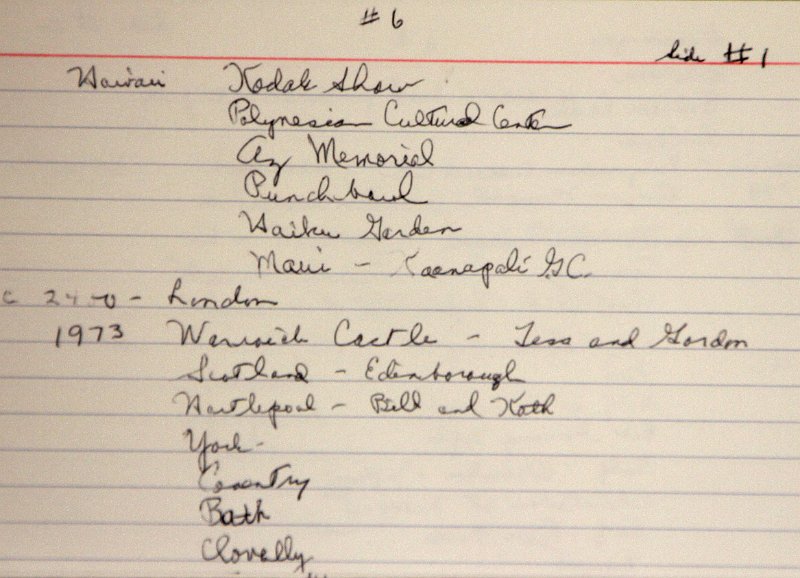 #6
Side #1
Hawaii Kodak Show
Polynesian Cultural Center
Az Memorial
Punchbowl
Haiku Garden
Maui - Kaanapali G.C.
London
1973 Warwick Castle - Tess and Gordon
Scotland - Edenborough
Hartlepool - Bill and Kath
York -
Coventry
Bath
Clovelly